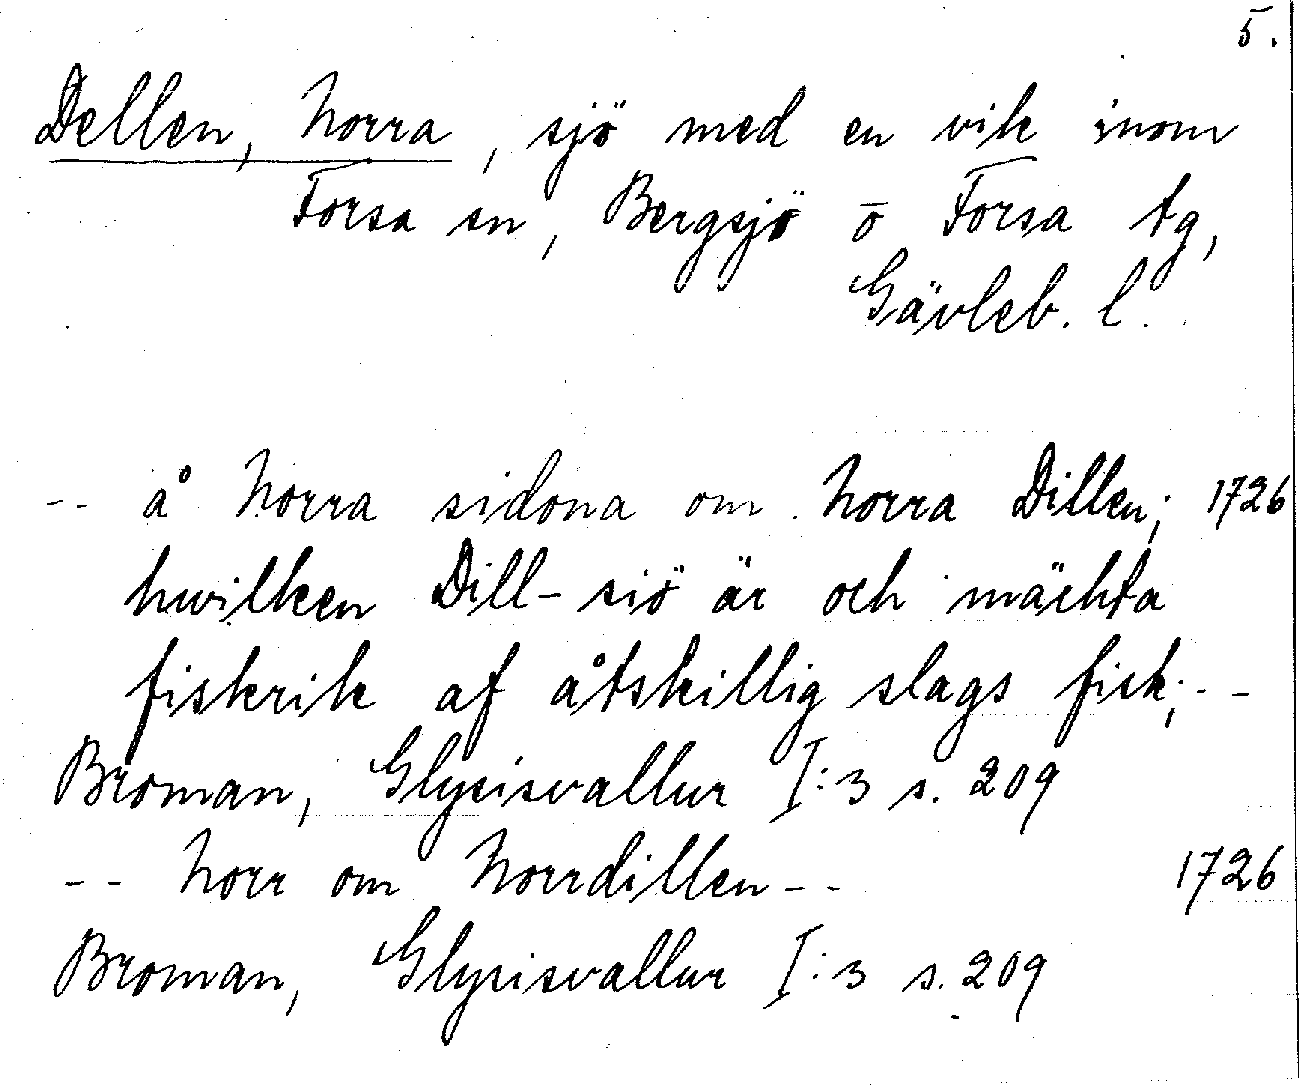 5.
Dellen, Norra, sjö med en vik inom
Forsa sn, Bergsjö o Forsa tg,
Gävleb. l.
-- å Norra sidona om Norra Dillen; 1726
hwilken Dill-siö är och mächta
fiskrik af åtskillig slags fisk; --
Broman, Glysisvallur I:3 s. 209
-- Norr om Norrdillen -- 1726
Broman, Glysisvallur I:3 s. 209